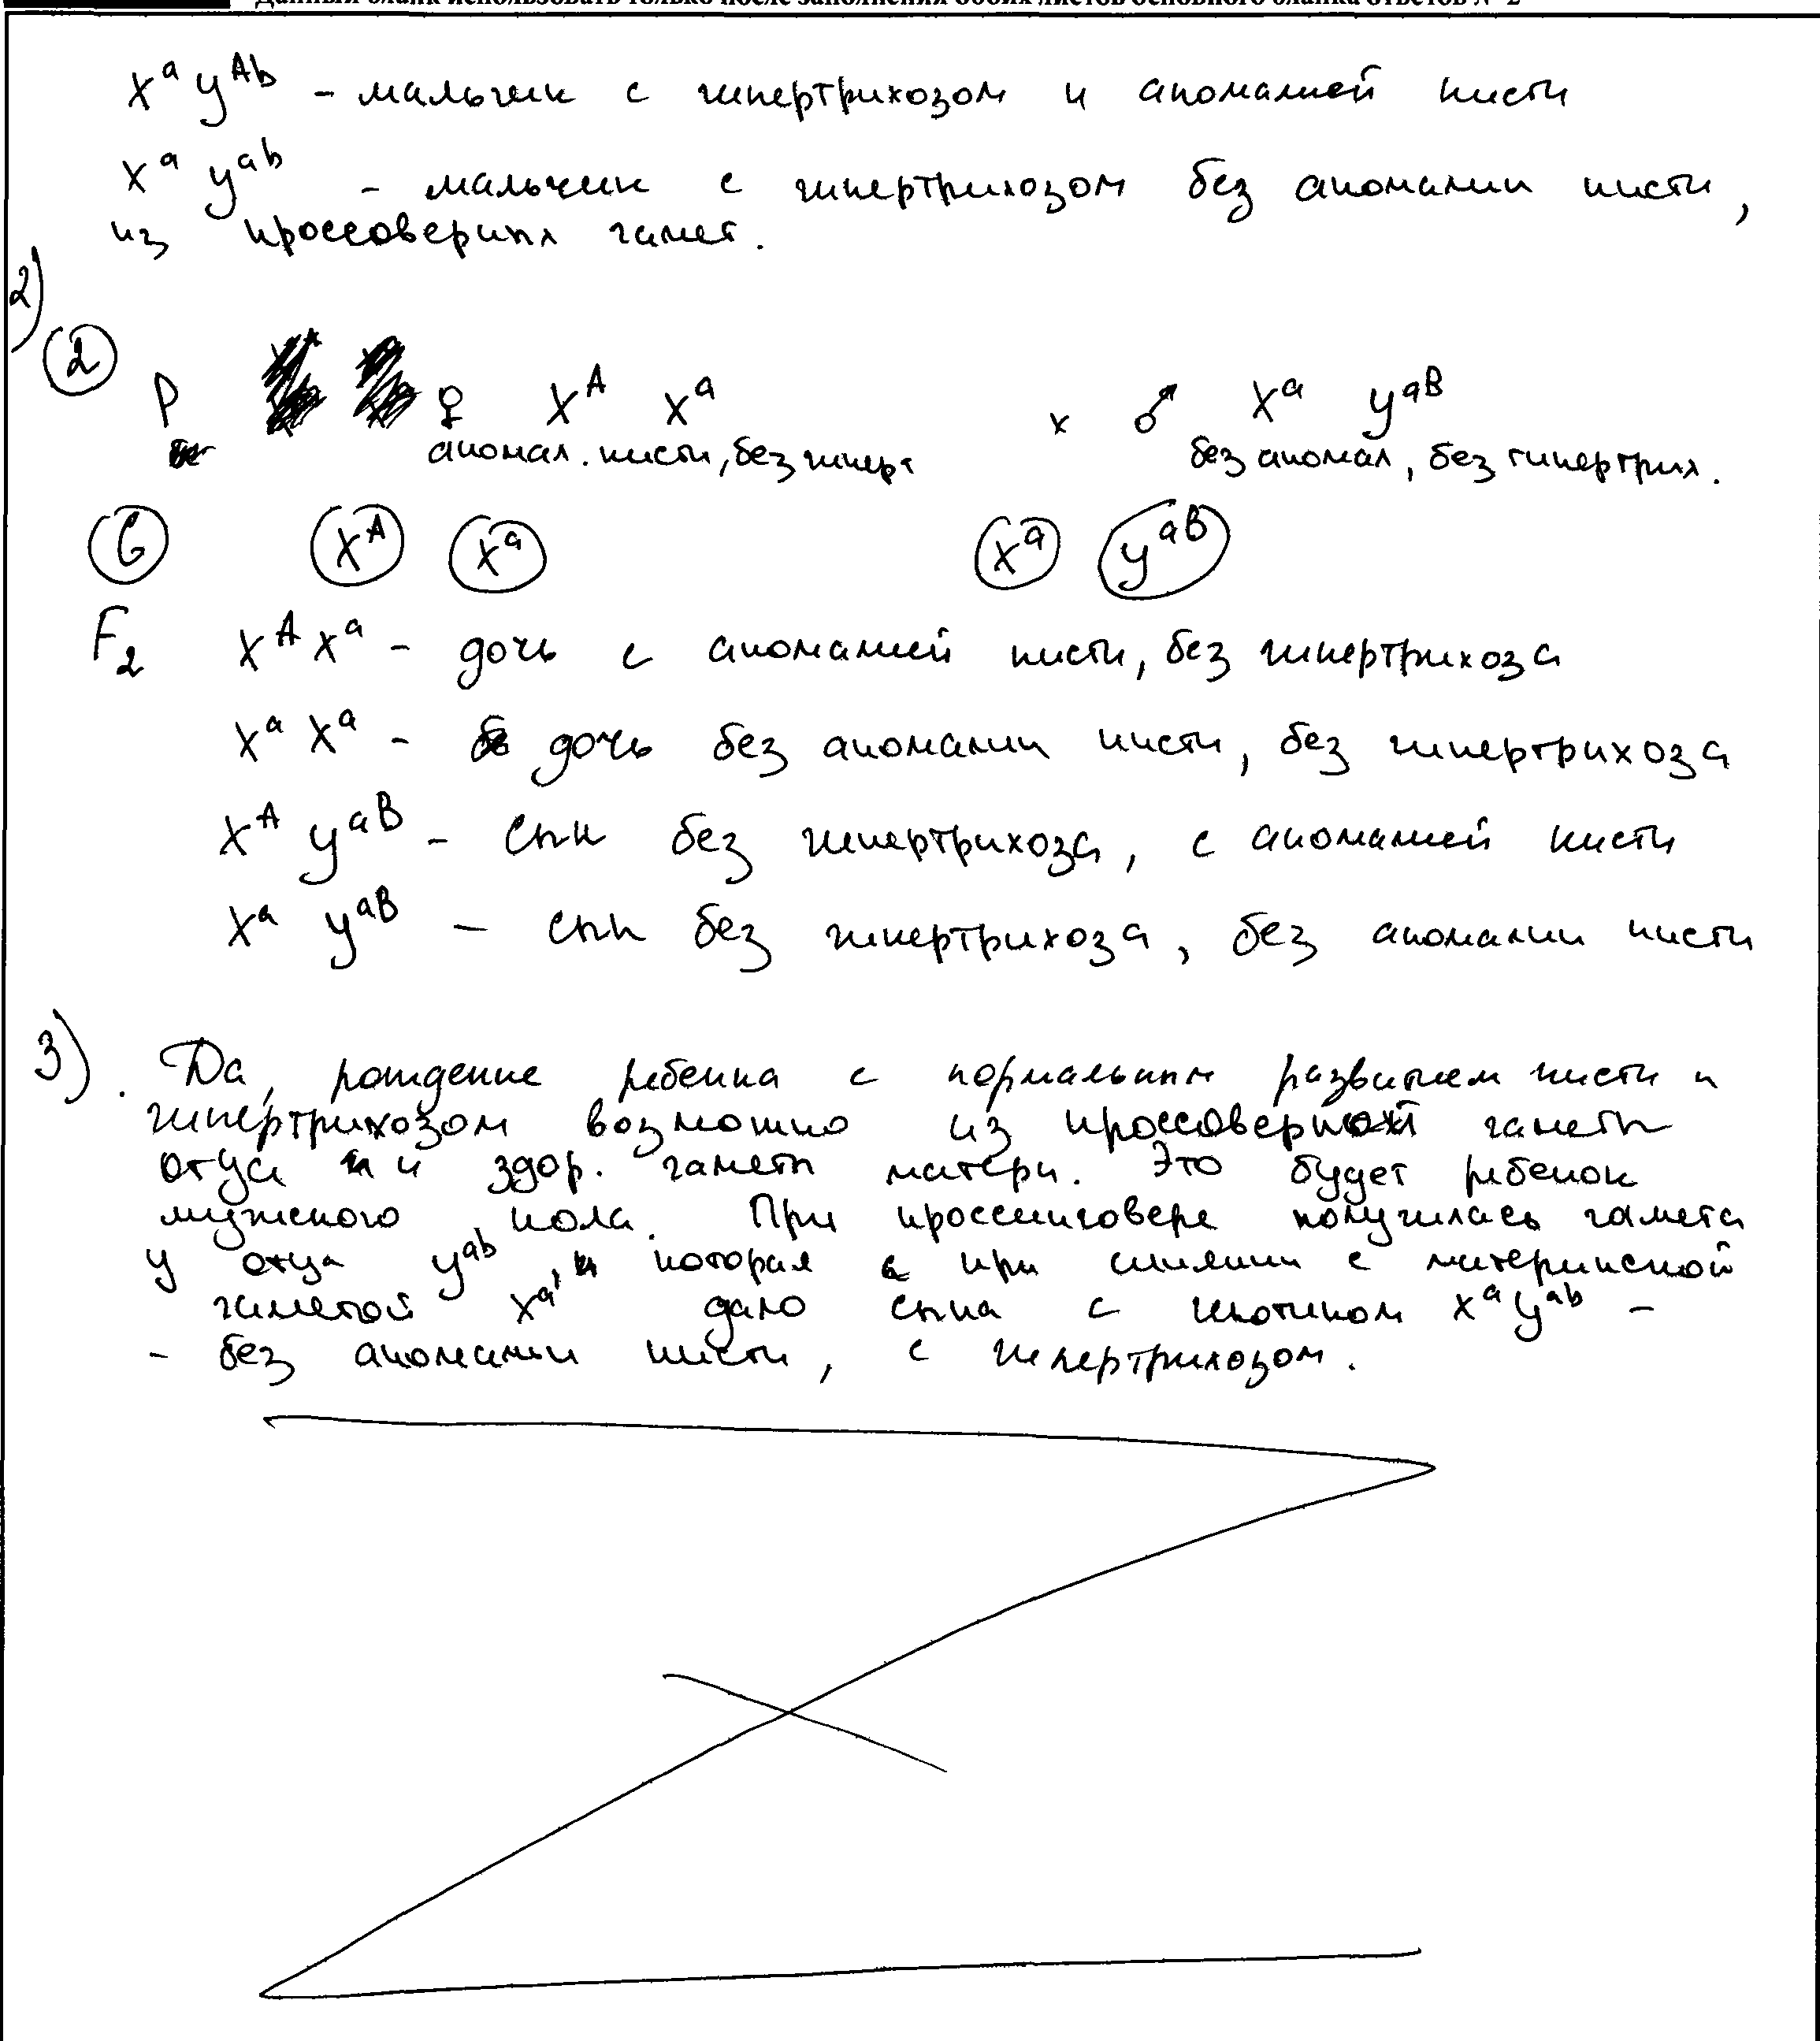 Данный бланк использовать только после заполнения обоих листов основного бланка ответов № 2
Xᵃ Yᴬᵇ – мальчик с гипертрихозом и аномалией кисти
Xᵃ Yᵃᵇ – мальчик с гипертрихозом без аномалии кисти,
из кроссоверных гамет.
2)
② P ♀ Xᴬ Xᵃ × ♂ Xᵃ Yᵃᴮ
аномал. кисти, без гиперт без аномал, без гипертрих.
G Xᴬ Xᵃ Xᵃ Yᵃᴮ
F₂ Xᴬ Xᵃ – дочь с аномалией кисти, без гипертрихоза
Xᵃ Xᵃ – дочь без аномалии кисти, без гипертрихоза
Xᴬ Yᵃᴮ – сын без гипертрихоза, с аномалией кисти
Xᵃ Yᵃᴮ – сын без гипертрихоза, без аномалии кисти
3). Да, рождение ребенка с нормальным развитием кисти и
гипертрихозом возможно из кроссоверной гаметы
отца и здор. гаметы матери. Это будет ребенок
мужского пола. При кроссинговере получилась гамета
у отца Yᵃᵇ, которая при слиянии с материнской
гаметой Xᵃ, дало сына с генотипом XᵃYᵃᵇ –
– без аномалии кисти, с гипертрихозом.